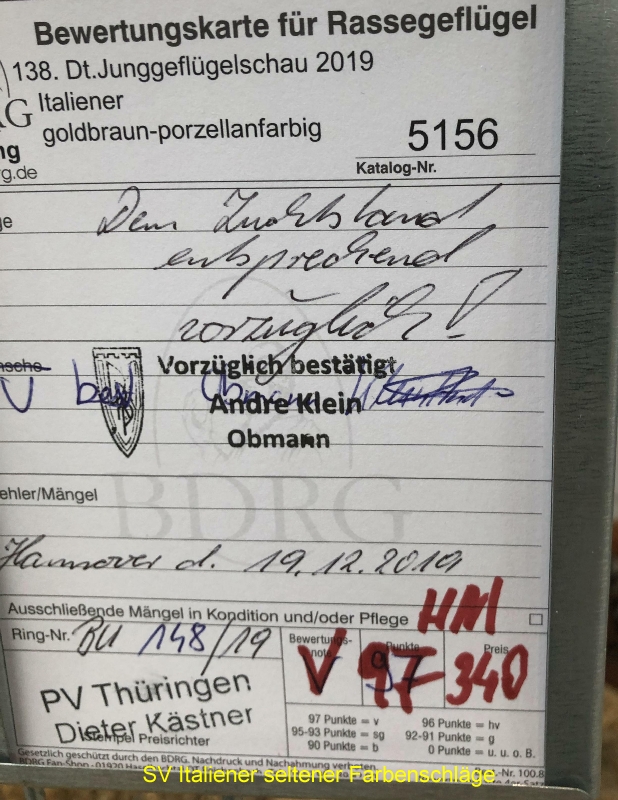 Bewertungskarte für Rassegeflügel
138. Dt.Junggeflügelschau 2019
Italiener
goldbraun-porzellanfarbig
5156
Katalog-Nr.
Dem Zuchtstand
entsprechend
vorzüglich!
Vorzüglich bestätigt
Andre Klein
Obmann
BDRG
ehler/Mängel
Hannover d. 19.12.2019
Ausschließende Mängel in Kondition und/oder Pflege
HM
Ring-Nr. BU 148/19
Bewertungsnote Punkte Preis
V 97 340
PV Thüringen
Dieter Kästner
Stempel Preisrichter
97 Punkte = v 96 Punkte = hv
95-93 Punkte = sg 92-91 Punkte = g
90 Punkte = b 0 Punkte = u. u. o. B.
Gesetzlich geschützt durch den BDRG. Nachdruck und Nachahmung verboten.
SV Italiener seltener Farbenschläge